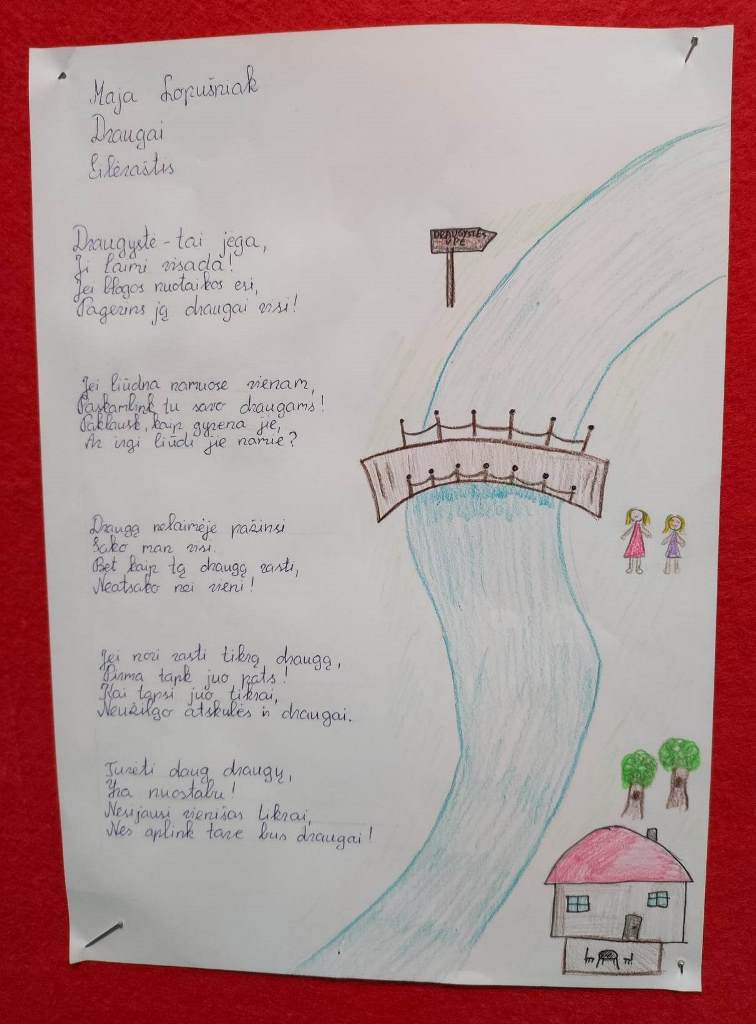 Maja Lopušniak
Draugai
Eilėraštis
DRAUGYSTĖS
UPĖ
Draugystė - tai jėga,
Ji laimi visada!
Jei blogos nuotaikos esi,
Pagerins ją draugai visi!
Jei liūdna namuose vienam,
Paskambink tu savo draugams!
Paklausk, kaip gyvena jie,
Ar irgi liūdi jie namie?
Draugą nelaimėje pažinsi
Sako man visi.
Bet kaip tą draugą rasti,
Neatsako nei vieni!
Jei nori rasti tikrą draugą,
Pirma tapk juo pats!
Kai tapsi juo tikrai,
Neužilgo atskubės ir draugai.
Turėti daug draugų,
Yra nuostabu!
Nesijausi vienišas tikrai,
Nes aplink tave bus draugai!